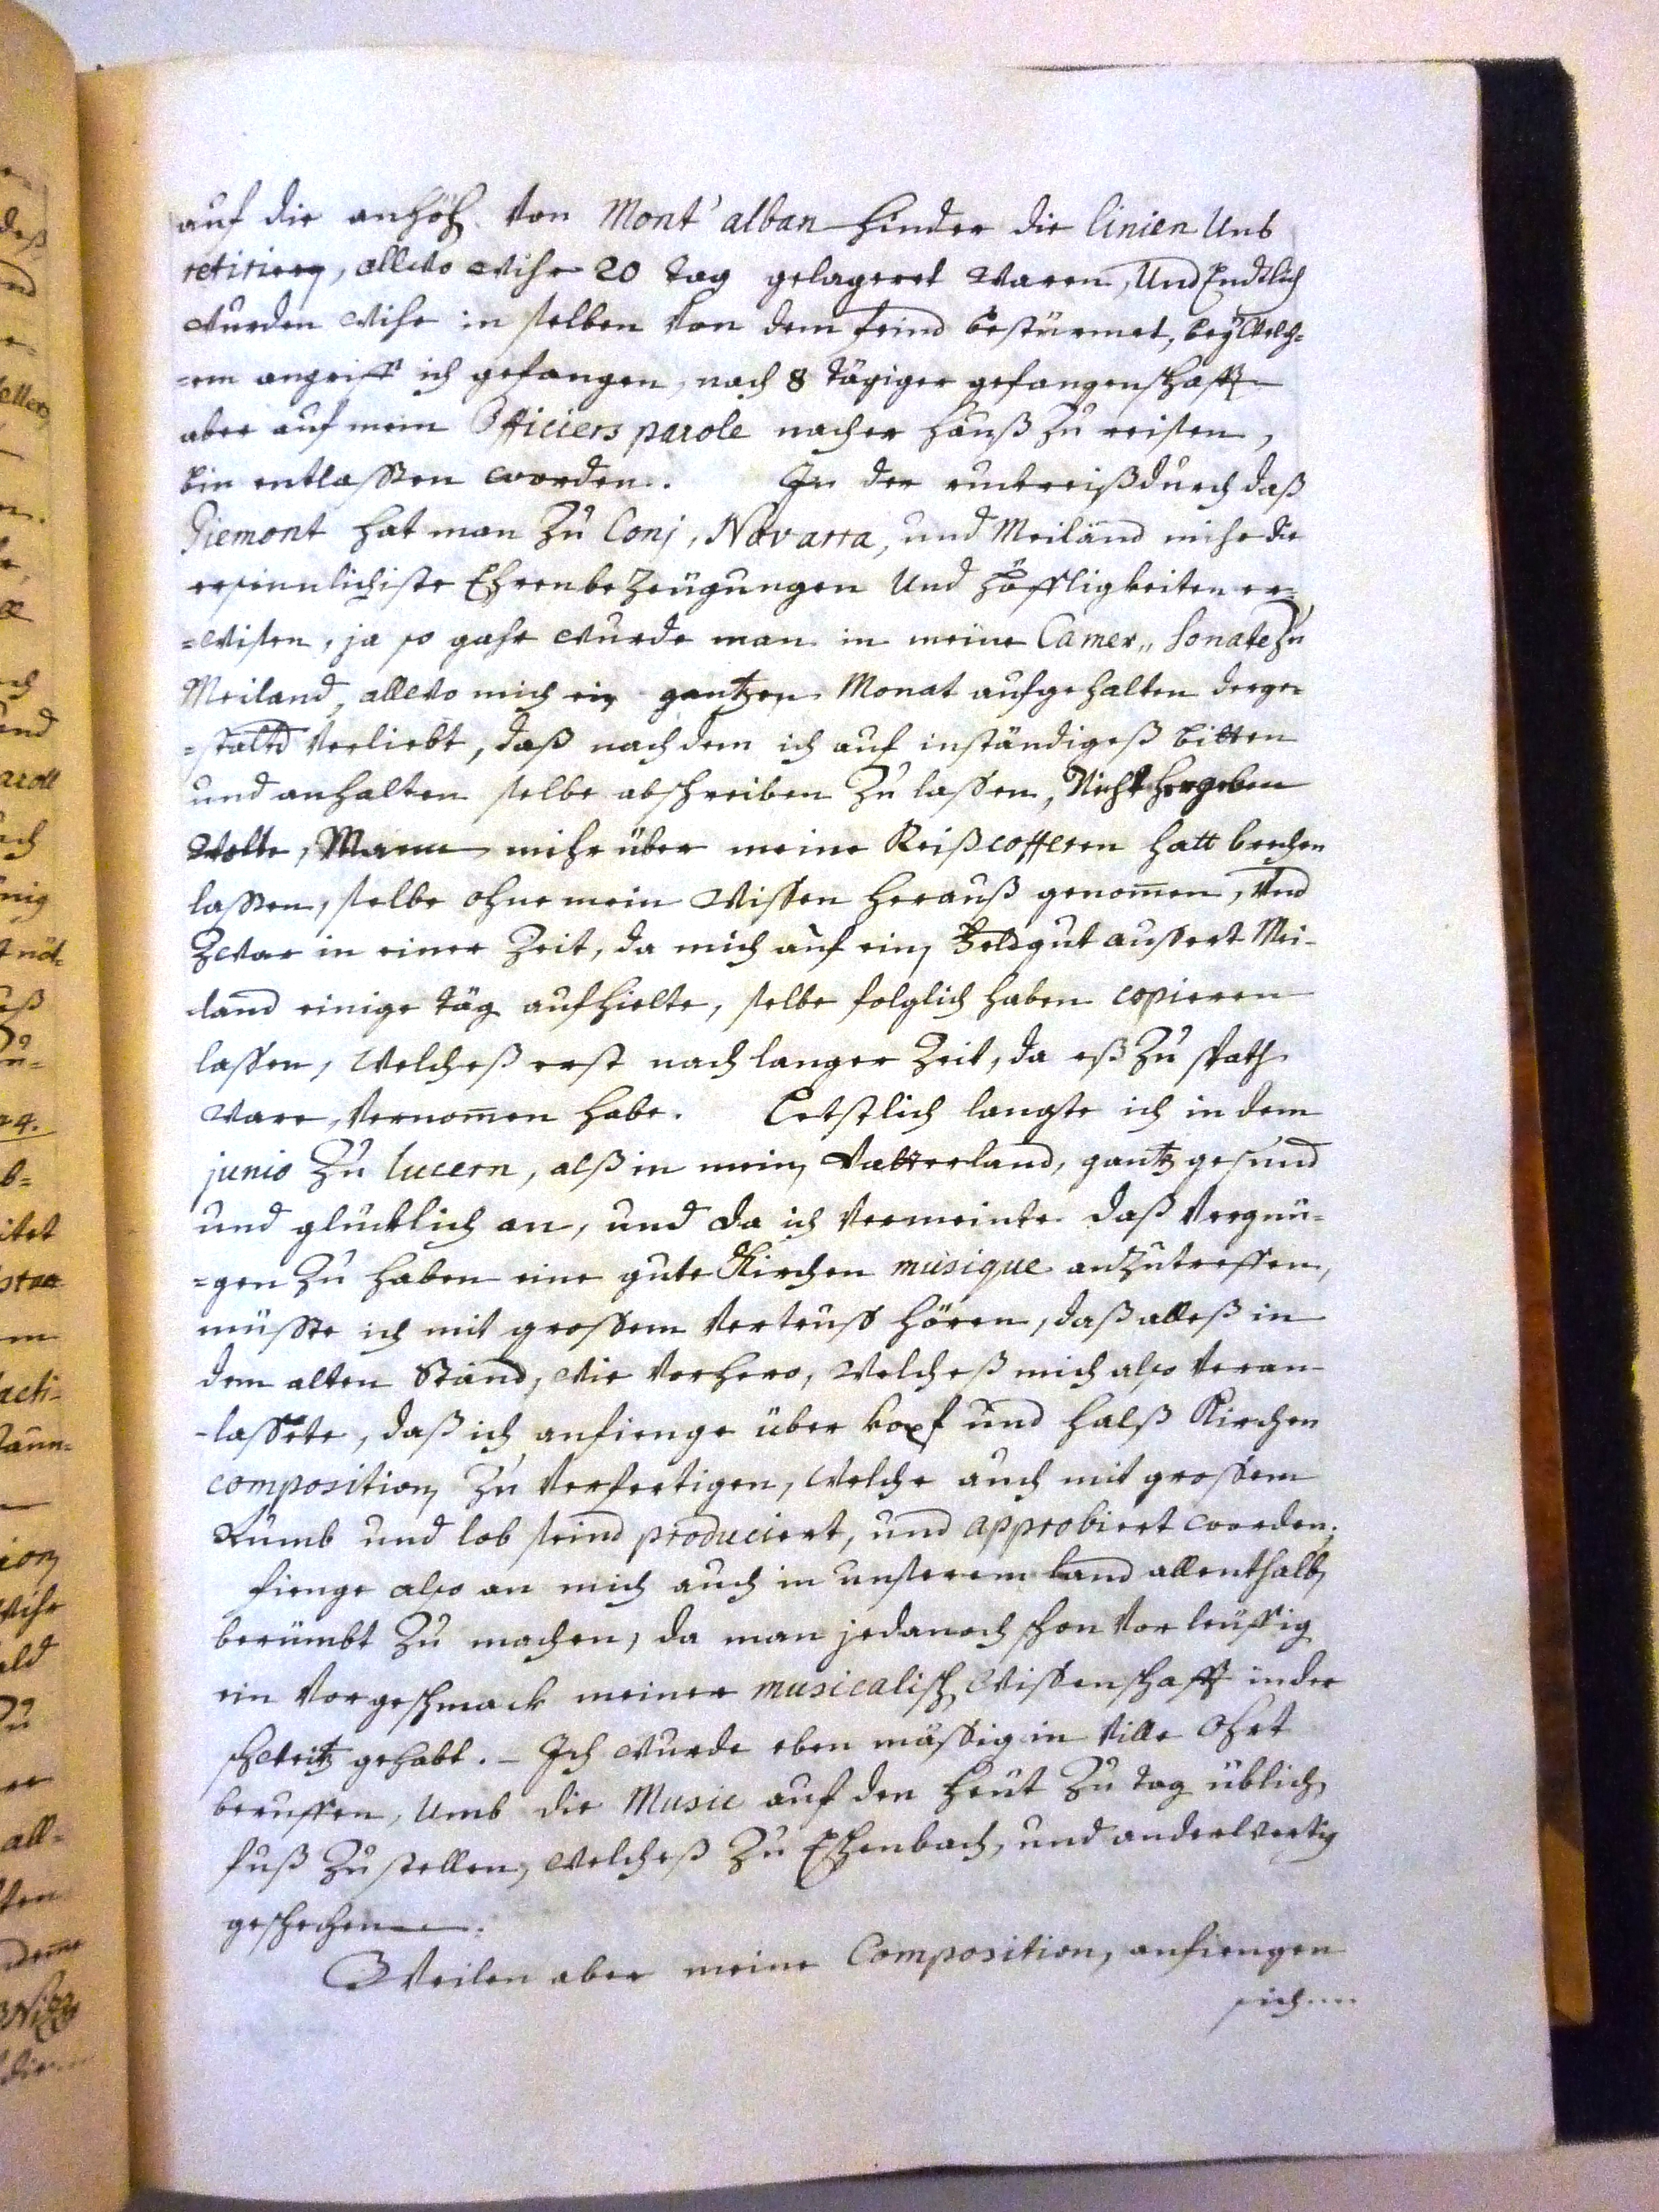 auf die anhöh von Mont'alban hinder die linien Uns
retirieren, allwo wihr 20 tag gelageret waren, Und Endtlich
wurden wihr in selben von dem feind bestürmet, beÿ welch=
=em angriff ich gefangen, nach 8 tägiger gefangenschafft
aber auf mein Officiers parole nacher hauß zu reisen,
bin entlassen worden. In der ruckreiß durch daß
Piemont hat man zu Conj, Novarra, und Meiland mihr die
ersinnlichiste Ehrenbezeügungen Und höffligkeiten er=
=wisen, ja so gahr wurde man in meine Camer,, Sonate zu
Meiland, allwo mich ein gantzen Monat aufgehalten derge=
=staltd verliebt, daß nach dem ich auf inständigeß bitten
und anhalten selbe abschreiben zu lassen, Nicht hergeben
wolte, Mann mihr über meine Reißcofferen hatt brechen
lassen, selbe ohne mein wissen herauß genom̄en, Und
zwar in einer Zeit, da mich auf ein Feldgut aussert Mei-
land einige täg aufhielte, selbe folglich haben copieren
lassen, welcheß erst nach langer Zeit, da eß zu spath
ware, vernom̄en habe. Letstlich langte ich in dem
junio zu lucern, alß in mein Vatterland, gantz gesund
und glücklich an, und da ich vermeinte daß vergnü=
=gen zu haben eine gute Kirchen musique anzutreffen,
müsste ich mit grossem vertruss hören, daß alleß in
dem alten Stand, wie vorhero, welcheß mich also veran-
-lassete, daß ich anfienge über kopf und halß Kirchen
composition zu verfertigen, welche auch mit grossem
Rumb und lob seind produciert, und approbiert worden;
fienge also an mich auch in unserem land allenthalb
berümbt zu machen, da man jedanoch schon vorleüffig
ein vorgeschmack meiner musicalisch wissenschafft in der
schweitz gehabt. – Ich wurde eben mässig in ville Ohrt
beruffen, umb die Music auf den heüt zu tag üblich
fuß zu stellen, welcheß zu Eschenbach, und anderwertig
geschechen.
Weilen aber meine Composition, anfiengen
sich....